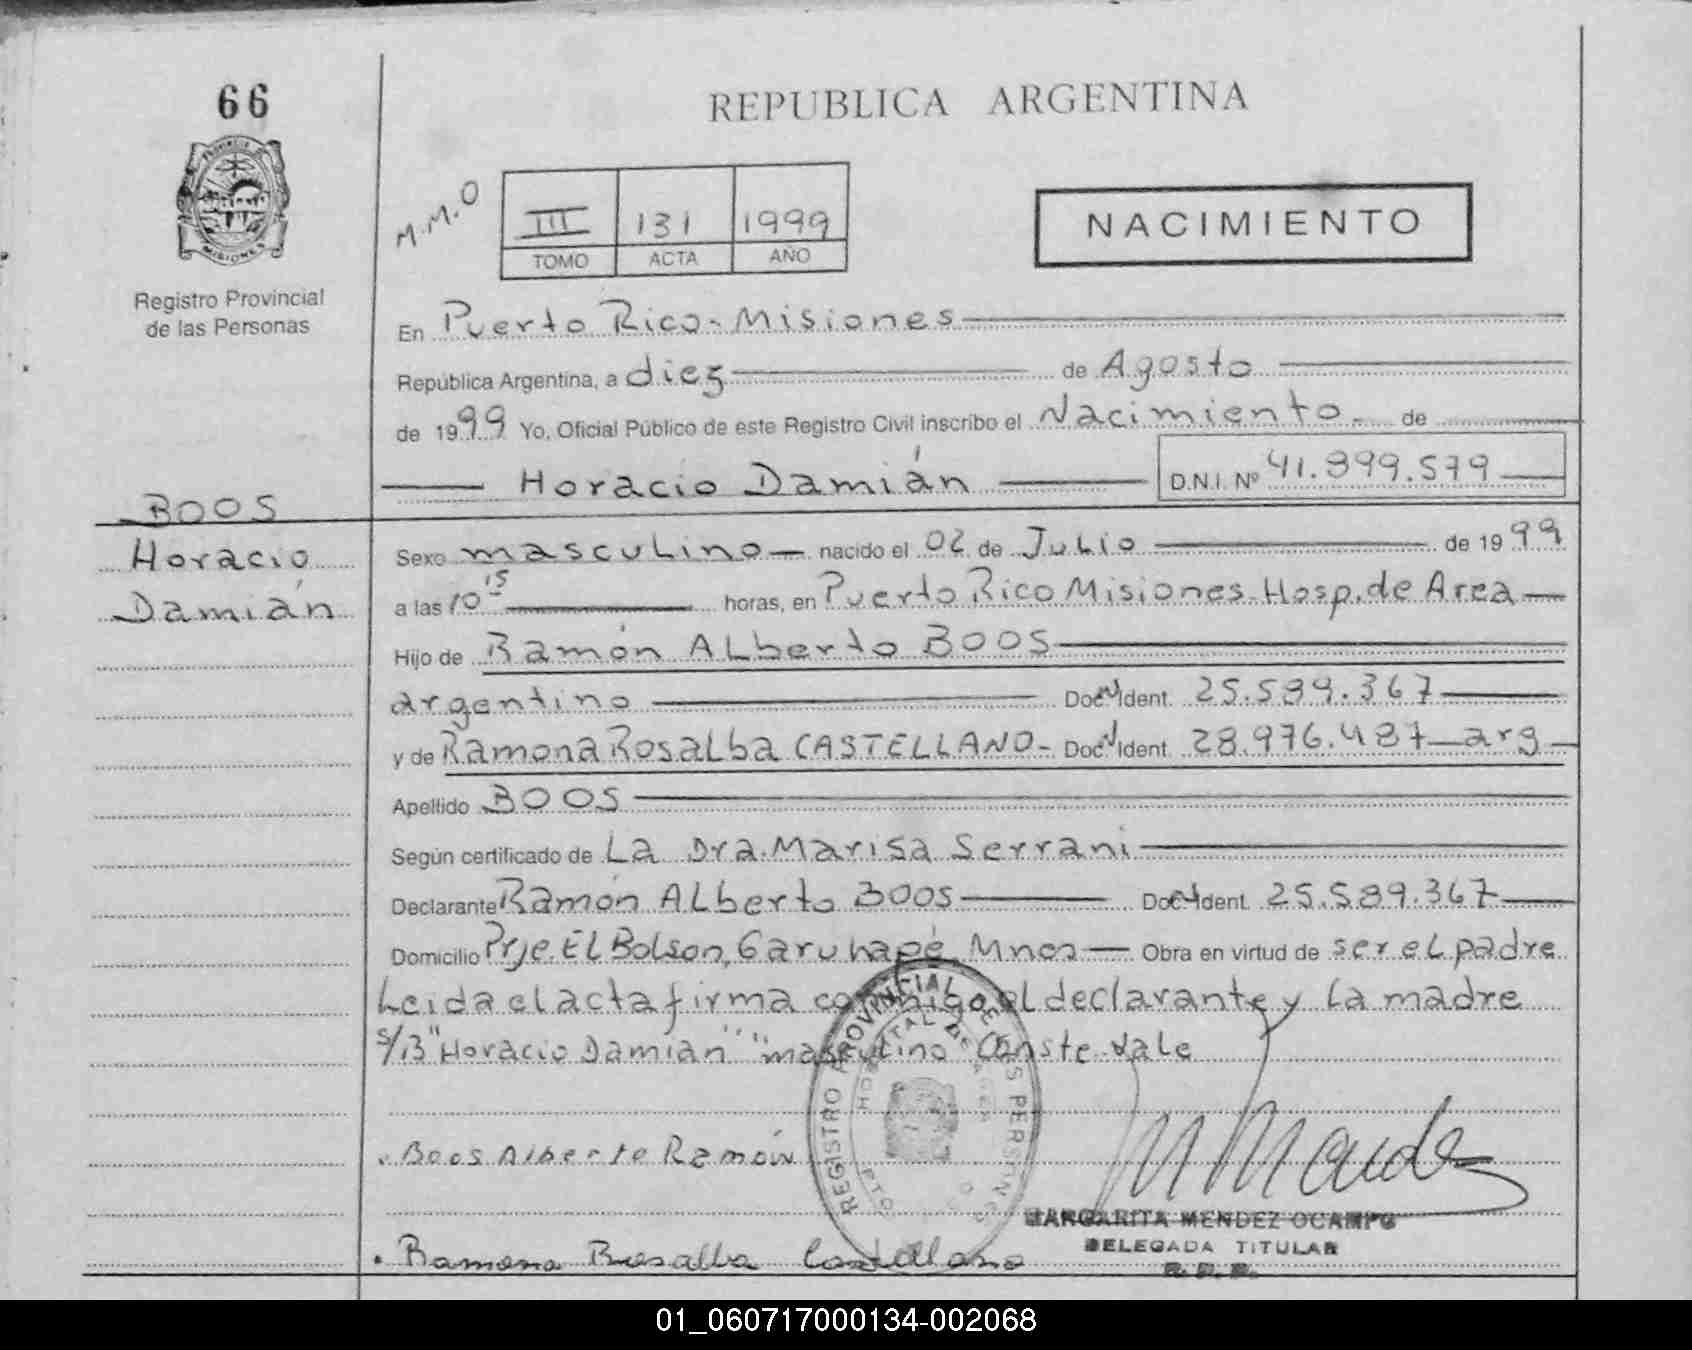 66
PROVINCIA DE
MISIONES
Registro Provincial
de las Personas
REPUBLICA ARGENTINA
M.M.O
III 131 1999
TOMO ACTA AÑO
NACIMIENTO
En Puerto Rico - Misiones
República Argentina, a diez de Agosto
de 1999 Yo, Oficial Público de este Registro Civil inscribo el Nacimiento de
Horacio Damián D.N.I. Nº 41.899.579
BOOS
Horacio
Damián
Sexo masculino nacido el 02 de Julio de 1999
a las 10 15 horas, en Puerto Rico Misiones - Hosp. de Area
Hijo de Ramón Alberto BOOS
argentino Doc Ident. 25.589.367
y de Ramona Rosalba CASTELLANO - Doc Ident. 28.976.487 arg
Apellido BOOS
Según certificado de La Dra. Marisa Serrani
Declarante Ramón Alberto Boos Doc Ident. 25.589.367
Domicilio Prje. El Bolson, Garuhapé, Mnes Obra en virtud de ser el padre
Leida el acta firma conmigo el declarante y la madre
s/B "Horacio Damián" "masculino" Conste. Vale
REGISTRO PROVINCIAL DE LAS PERSONAS
HOSPITAL DE AREA
PTO. RICO
Boos Alberto Ramón
MARGARITA MENDEZ OCAMPO
DELEGADA TITULAR
R. P. P.
Ramona Rosalba Castellano
01_060717000134-002068